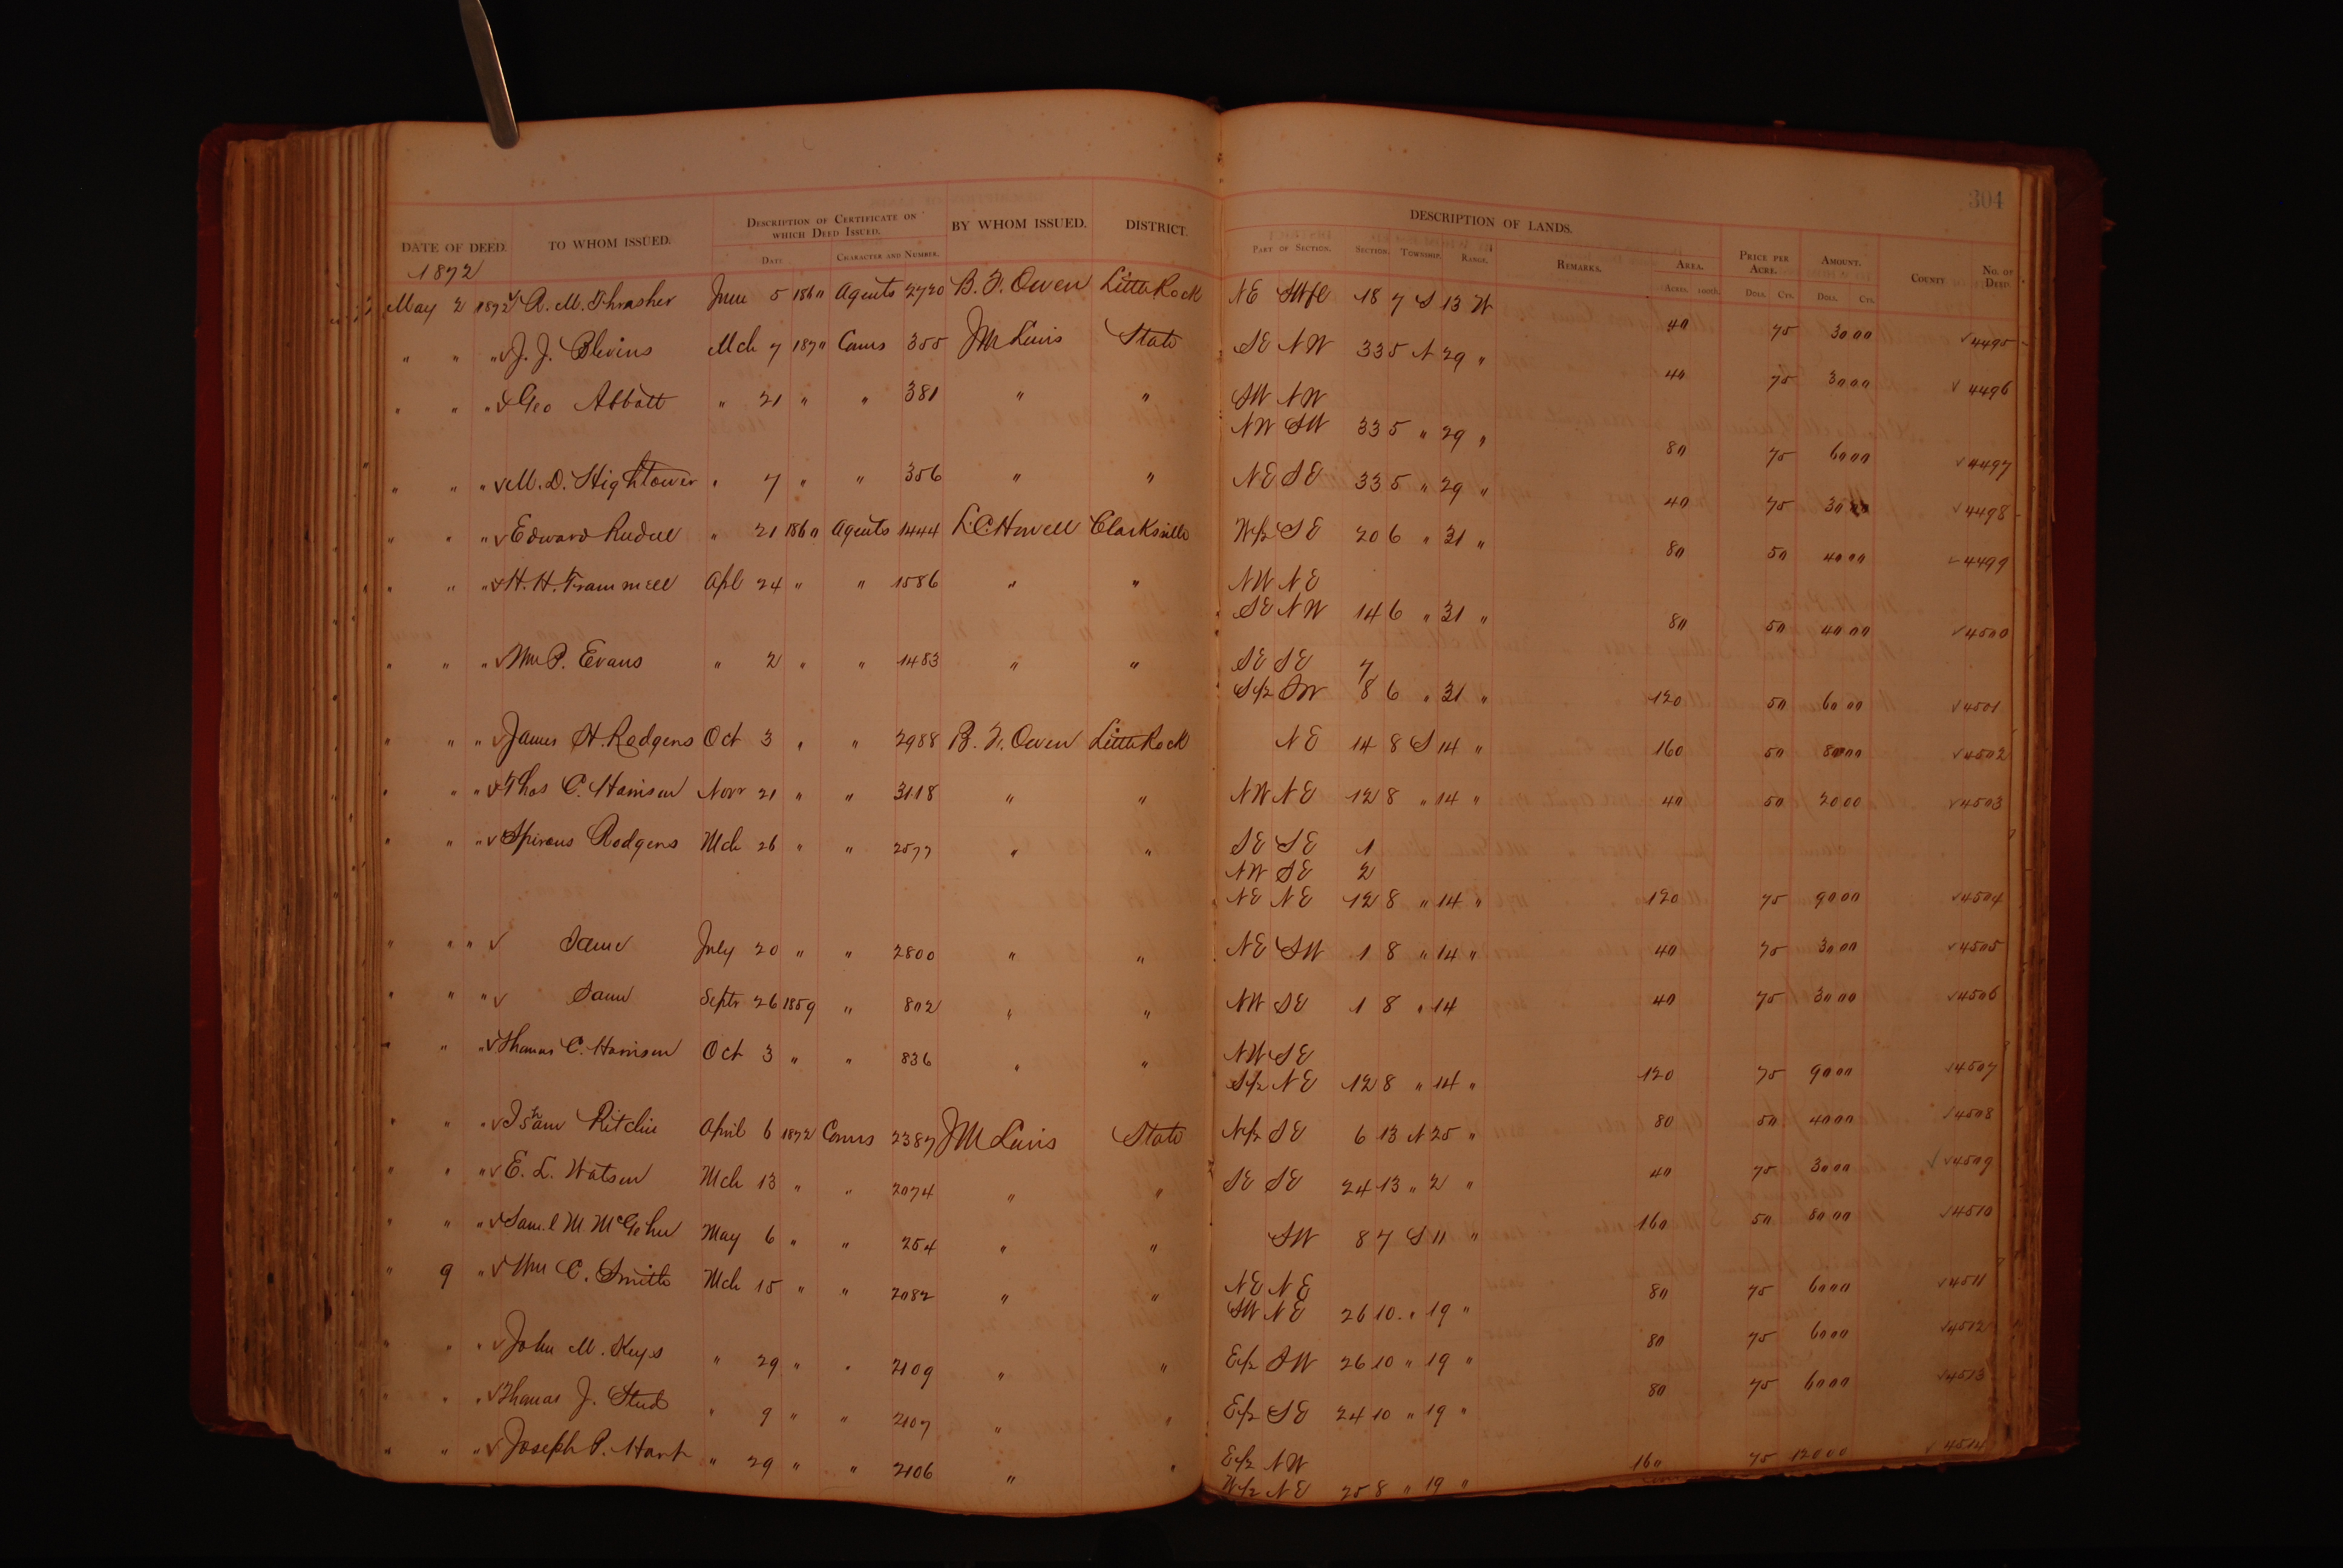 304
DESCRIPTION OF CERTIFICATE ON WHICH DEED ISSUED.
DESCRIPTION OF LANDS.
DATE OF DEED. TO WHOM ISSUED. DATE CHARACTER AND NUMBER. BY WHOM ISSUED. DISTRICT. PART OF SECTION. SECTION. TOWNSHIP. RANGE. REMARKS. AREA. PRICE PER ACRE. AMOUNT. COUNTY NO. OF DEED.
ACRES. DOLS. CTS. DOLS. CTS.
1872
May 2 1872 A. M. Thrasher June 5 1860 Agents 2720 B. F. Owen Little Rock NE 18 7 S 13 W 40 75 30 00 4495
" " " J. J. Blevins Mch 7 1870 Coms 355 JM Lewis State SE NW 33 5 N 29 " 40 75 30 00 4496
" " " Geo Abbott " 21 " " 381 " " SW NW
NW SW 33 5 " 29 " 80 75 60 00 4497
" " " M. D. Hightower " 7 " " 356 " " NE SE 33 5 " 29 " 40 75 30 00 4498
" " " Edward 21 1860 Agents 1444 L. C. Howell Clarksville W/2 SE 20 6 " 31 " 80 50 40 00 4499
" " " H. H. Trammell Apl 24 " " 1586 " " NW NE
SE NW 14 6 " 31 " 80 50 40 00 4500
" " " Wm P. Evans " 2 " " 1483 " " SE SE 7
S/2 SW 8 6 " 31 " 120 50 60 00 4501
" " " James H. Rodgers Oct 3 " " 2988 B. F. Owen Little Rock NE 14 8 S 14 " 160 50 80 00 4502
" " " Thos C. Harrison Novr 21 " " 3118 " " NW NE 12 8 " 14 " 40 50 20 00 4503
" " " Rodgers Mch 26 " " 2577 " " SE SE 1
NW SE 2
NE NE 12 8 " 14 " 120 75 90 00 4504
" " " Same July 20 " " 2800 " " NE SW 1 8 " 14 " 40 75 30 00 4505
" " " Same Septr 26 1859 " 802 " " NW SE 1 8 " 14 40 75 30 00 4506
" " " Thomas C. Harrison Oct 3 " " 836 " " NW SE
S/2 NE 12 8 " 14 " 120 75 90 00 4507
" " " Isham Ritchie April 6 1872 Coms 2387 JM Lewis State N/2 SE 6 13 N 25 " 80 50 40 00 4508
" " " E. L. Watson Mch 13 " " 2074 " " SE SE 24 13 " 2 " 40 75 30 00 4509
" " " Saml M. McGehee May 6 " " 254 " " SW 8 7 S 11 " 160 50 80 00 4510
" 9 " Wm C. Smith Mch 15 " " 2082 " " NE NE
SW NE 26 10 " 19 " 80 75 60 00 4511
" " " John M. Keys " 29 " " 2109 " " E/2 SW 26 10 " 19 " 80 75 60 00 4512
" " " Thomas J. " 9 " " 2107 " " E/2 SE 24 10 " 19 " 80 75 60 00 4513
" " " Joseph P. Hart " 29 " " 2106 " " E/2 NW
W/2 NE 25 8 " 19 " 160 75 120 00 4514